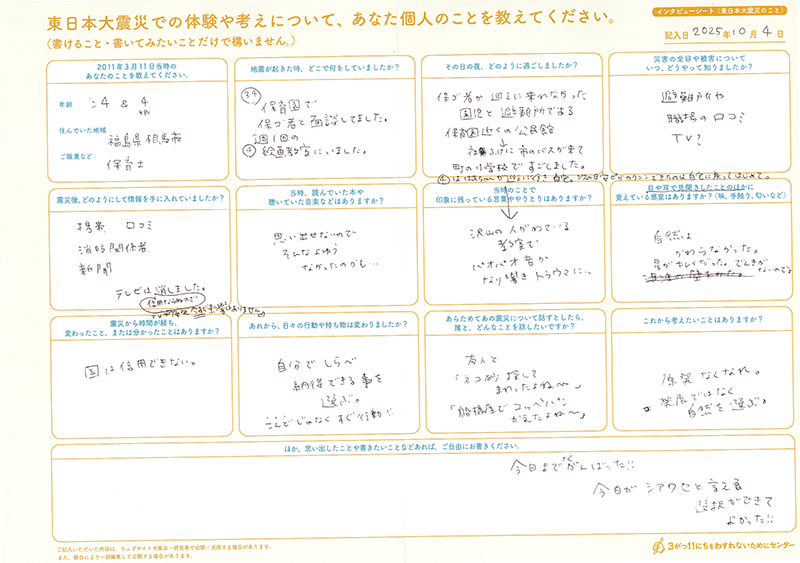 東日本大震災での体験や考えについて、あなた個人のことを教えてください。
(書けること・書いてみたいことだけで構いません。)
インタビューシート(東日本大震災のこと)
記入日 2025年 10月 4日
2011年3月11日当時の
あなたのことを教えてください。
年齢 34 & 4
住んでいた地域
福島県相馬市
ご職業など
保育士
地震が起きた時、どこで何をしていましたか?
㉞ 保育園で
保ゴ者と面談してました。
週1回の
④ 絵画教室にいました。
その日の夜、どのように過ごしましたか?
保ゴ者が迎えに来れなかった
園児と避難所である
保育園近くの公民館
夜更ふけに市のバスが来て
町の小学校ですごしました。
災害の全容や被害について
いつ、どうやって知りましたか?
避難所や
職場の口コミ
TV?
震災後、どのようにして情報を手に入れていましたか?
携帯 口コミ
消防関係者
新聞
テレビは消しました。
信用ならねので
当時、読んでいた本や
聴いていた音楽などはありますか?
思い出せないので
そんなよゆう
なかったのかも…
当時のことで
印象に残っている言葉ややりとりはありますか?
沢山の人がいている
教室で
パオパオ音が
なり響きトラウマに…
目や耳で見聞きしたことのほかに
覚えている感覚はありますか?(味、手触り、匂いなど)
自然は
かわらなかった。
星がキレイだった。でんきが
ないのでる
震災から時間が経ち、
変わったこと、または分かったことはありますか?
国は信用できない。
あれから、日々の行動や持ち物は変わりましたか?
自分でしらべ
納得できる事を
選ぶ。
こんどじゃなくすぐ行動!!
あらためてあの震災について話すとしたら、
誰と、どんなことを話したいですか?
友人と
「ネコ砂探して
まわったよね〜」
「船橋屋でコッペパン
かえたよね〜」
これから考えたいことはありますか?
原発なくなれ。
発展ではなく
自然を選ぶ。
ほか、思い出したことや書きたいことなどあれば、ご自由にお書きください。
今日までよくがんばった!!
今日がシアワセと言える
選択ができて
よかった!!
ご記入いただいた内容は、ウェブサイトや展示・研究等で公開・活用する場合があります。
また、都合により一部編集して公開する場合があります。
3がつ11にちをわすれないためにセンター